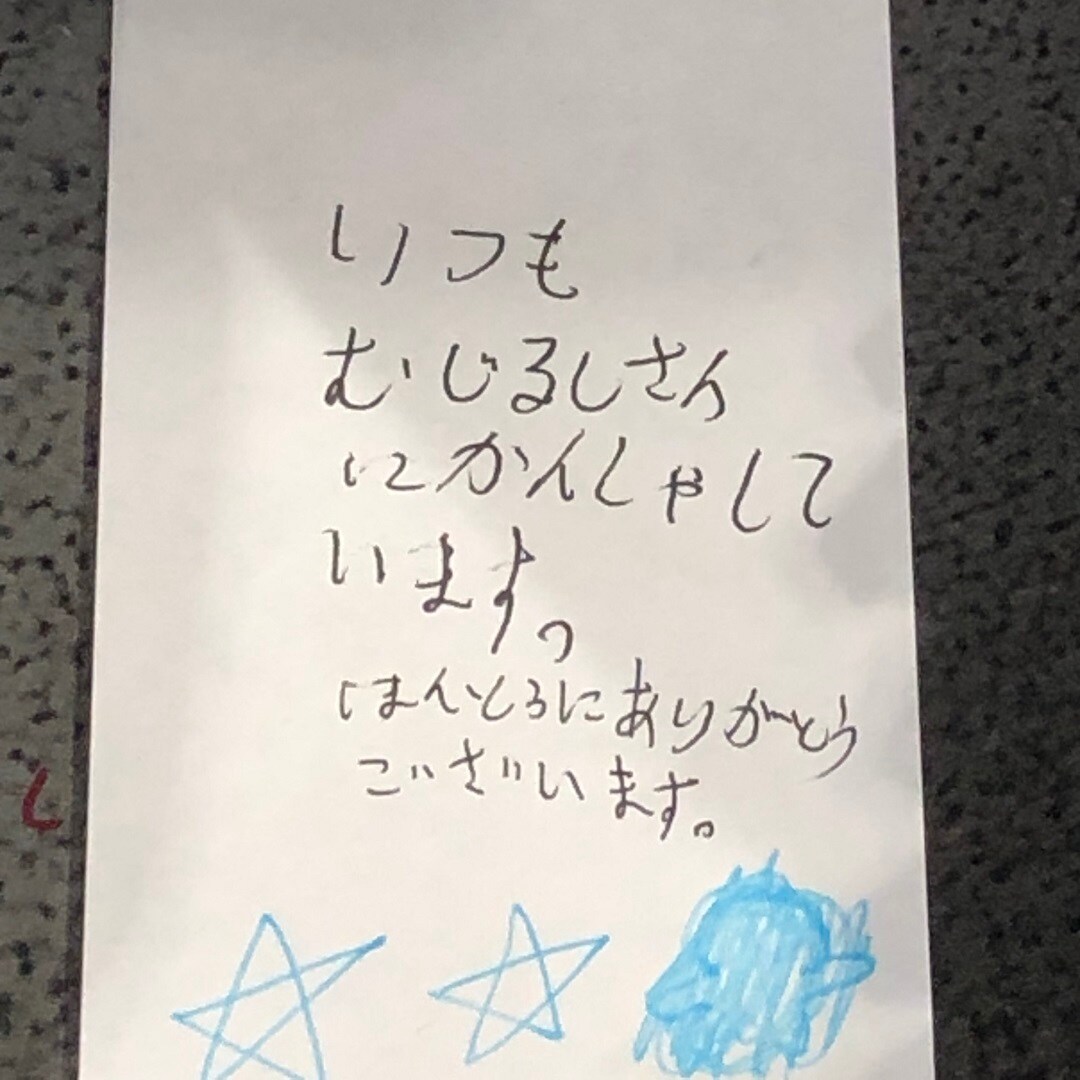 いつも
むじるしさん
にかんしゃして
います。
ほんとうにありがとう
ございます。